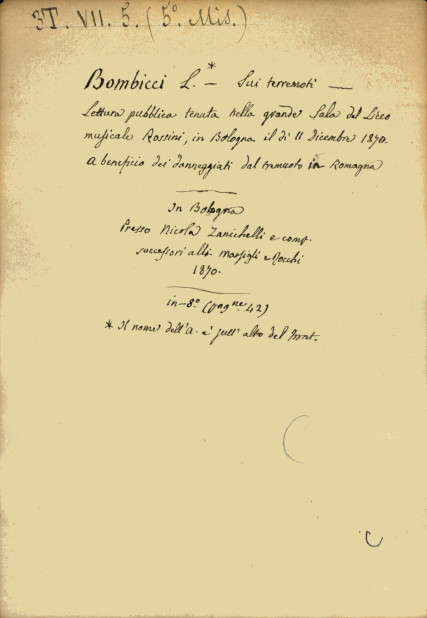 3T. VII. 5. (5º. Mis.)
Bombicci L.* — Sui terremoti —
Lettura pubblica tenuta nella grande Sala del Liceo
musicale Rossini, in Bologna il dì 11 dicembre 1870.
a beneficio dei danneggiati dal tremuoto in Romagna
In Bologna
Presso Nicola Zanichelli e comp.
successori alli Marsigli e Rocchi
1870.
in-8.º (pag.ne 42)
* Il nome dell'a. è sull' alto del front.